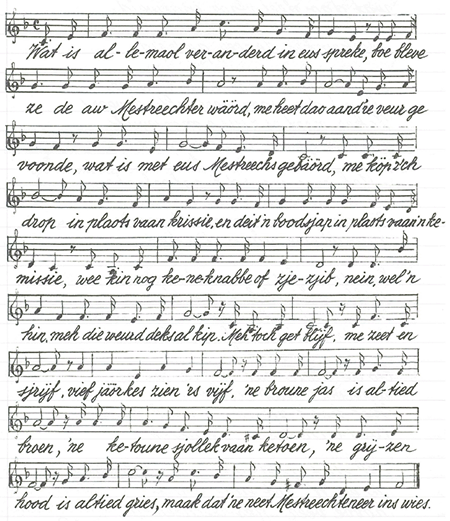 Wat is al-le-maol ver-an-derd in eus spreke, boe bleve
ze de aw Mestreechter wäörd, me heet dao aand're veur ge
voonde, wat is met eus Mestreechs gebäörd, me köp z'ch
drop in plaots vaan krissie, en deit 'n boodsjap in plaots vaan 'n ke-
missie, wee kin nog ke-ne-knabbe of zje-zjib, nein, wel 'n
hin, meh die weurd deks al kip. Meh toch get blijf, me zeet en
sjrijf, vief jäörkes zien 'rs vijf, 'ne broune jas is al-tied
broen, 'ne ke-toune sjollek vaan ketoen, 'ne grij-zen
hood is altied gries, maak dat 'ne neet Mestreechteneer ins wies.